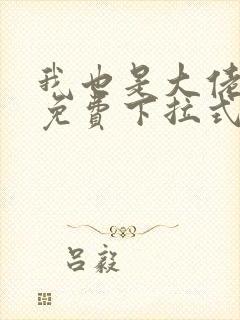 我也是大佬
免费下拉式
吕毅